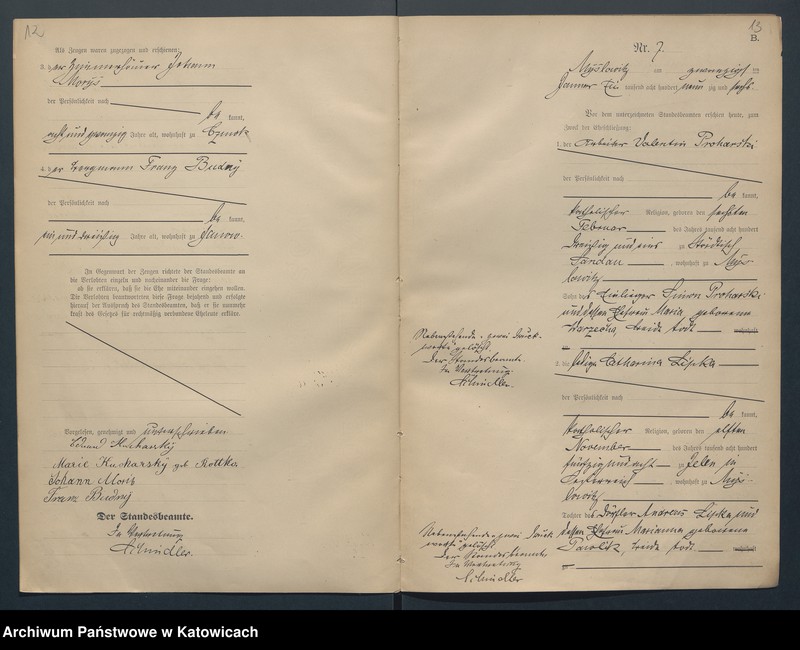 12
Als Zeugen waren zugezogen und erschienen:
3. der Zimmerhäuer Johann
Morys
der Persönlichkeit nach
be kannt,
acht und zwanzig Jahre alt, wohnhaft zu
4. der Bergmann Franz Budny
der Persönlichkeit nach
be kannt,
ein und dreißig Jahre alt, wohnhaft zu Janow.
In Gegenwart der Zeugen richtete der Standesbeamte an
die Verlobten einzeln und nacheinander die Frage:
ob sie erklären, daß sie die Ehe miteinander eingehen wollen.
Die Verlobten beantworteten diese Frage bejahend und erfolgte
hierauf der Ausspruch des Standesbeamten, daß er sie nunmehr
kraft des Gesetzes für rechtmäßig verbundene Eheleute erkläre.
Vorgelesen, genehmigt und unterschrieben
Eduard Kucharsky
Marie Kucharsky geb Kottko
Johann
Franz Budny
Der Standesbeamte.
In Vertretung
Schindler
13
B.
Nr. 7.
Myslowitz am zwanzigsten
Januar tausend acht hundert neun zig und sechs
Vor dem unterzeichneten Standesbeamten erschienen heute, zum
Zweck der Eheschließung:
1. der Arbeiter Valentin Proharski
der Persönlichkeit nach
be kannt,
katholischer Religion, geboren den sechsten
Februar des Jahres tausend acht hundert
dreißig und eins zu Städtisch
Jandau, wohnhaft zu Mys-
lowitz
Sohn des Einlieger Simon Proharski
und dessen Ehefrau Maria, geborene
beide todt wohnhaft
2. die ledige Catharina Lipka
der Persönlichkeit nach
be kannt,
katholischer Religion, geboren den elften
November des Jahres tausend acht hundert
fünfzig und acht zu Jelen in
Oesterreich, wohnhaft zu Mys-
lowitz
Tochter des Häusler Andreas Lipka und
dessen Ehefrau Marianna geborene
beide todt wohnhaft
Nebenstehende zwei Druck-
worte gelöscht
Der Standesbeamte
In Vertretung
Schindler
Nebenstehende zwei Druck
worte gelöscht
Der Standesbeamte
In Vertretung
Schindler
Archiwum Państwowe w Katowicach